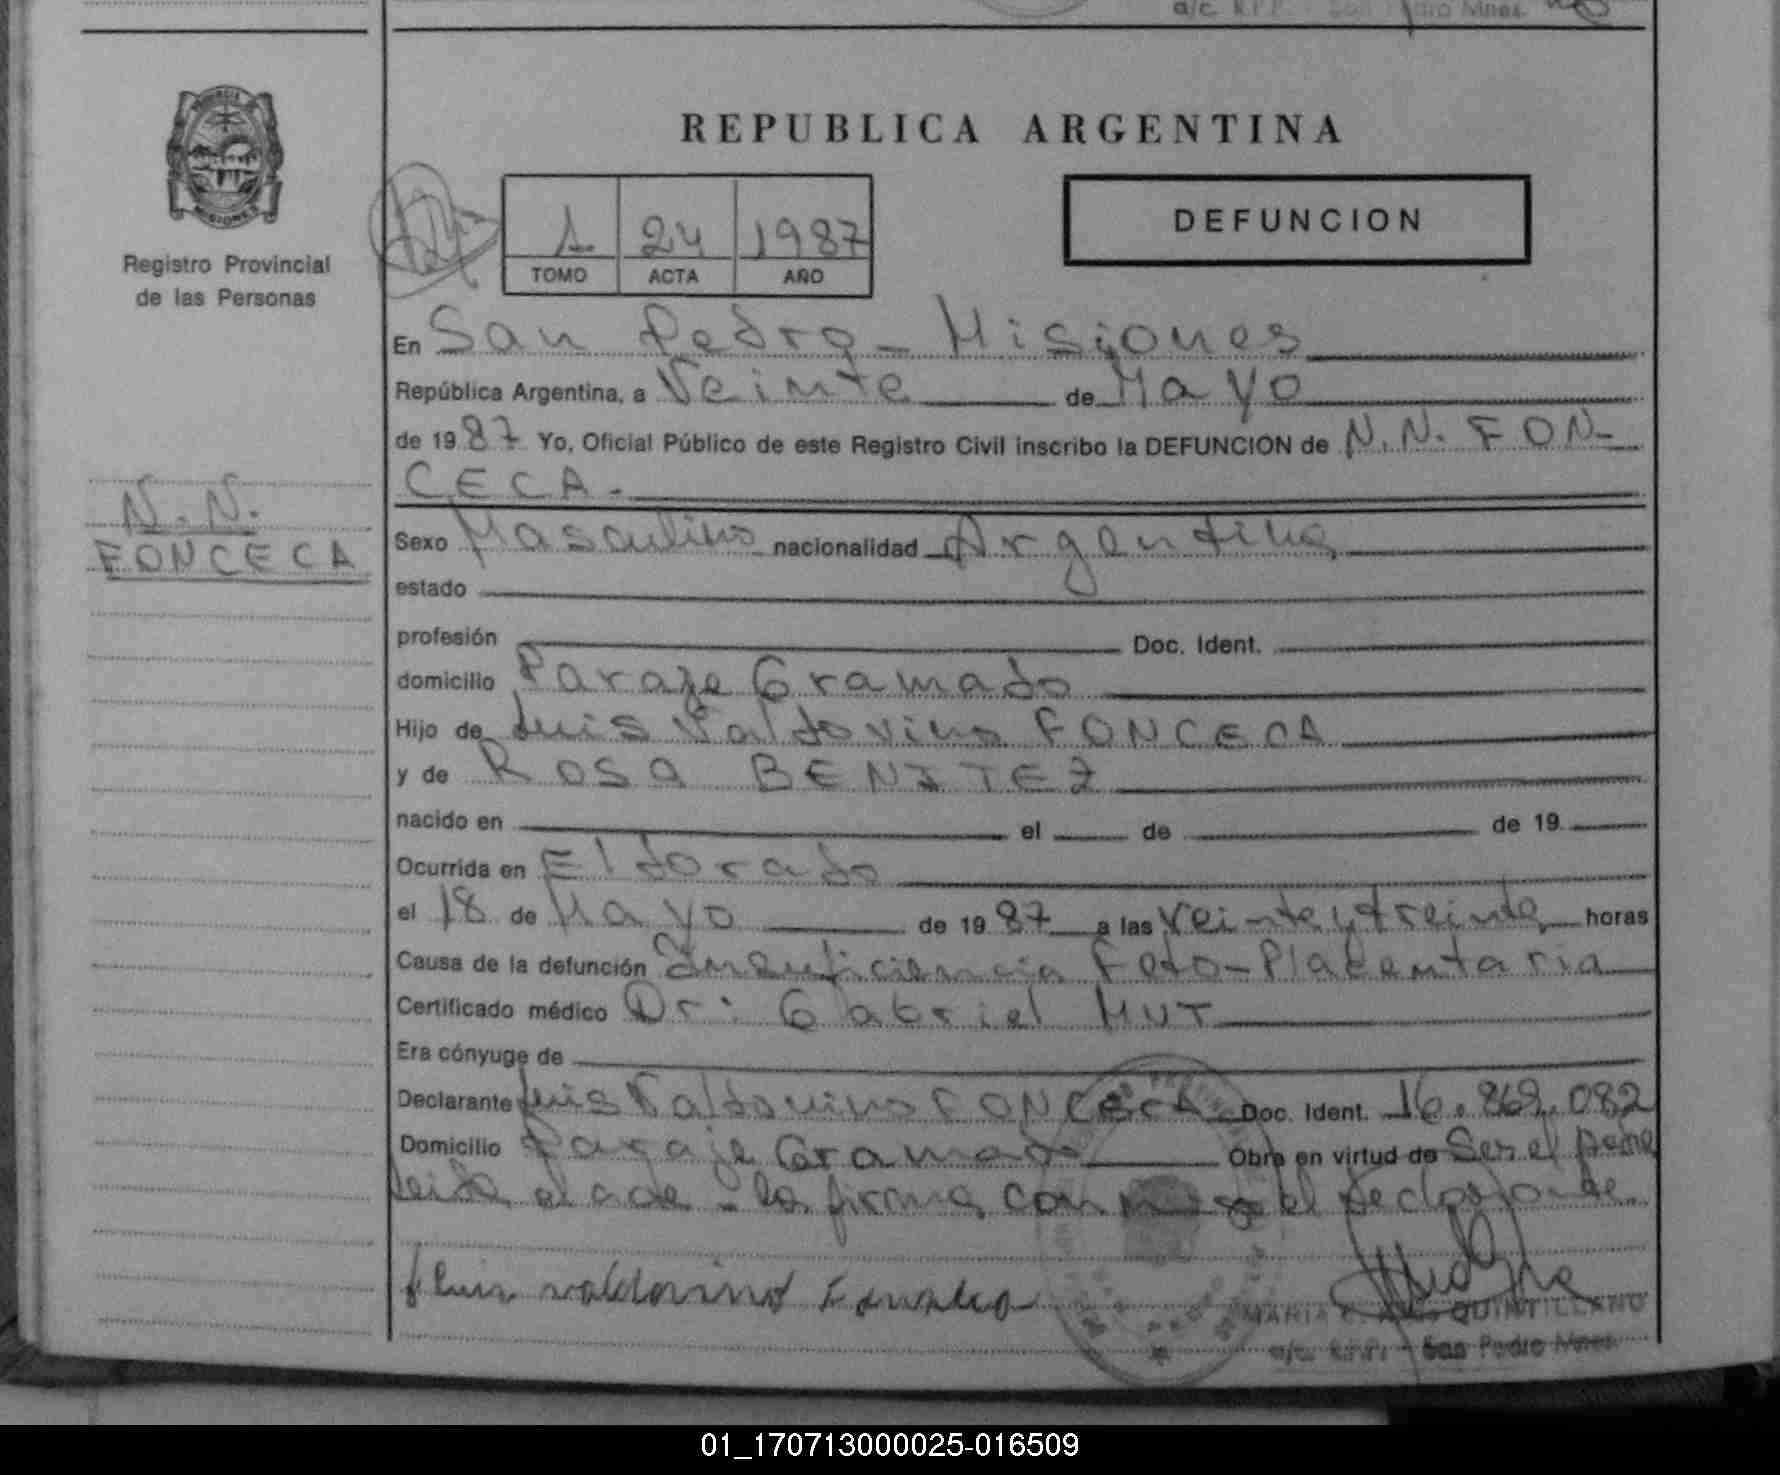 a/c. R.P.P. - San Pedro Mnes.
REPUBLICA ARGENTINA
PROVINCIA DE MISIONES
Registro Provincial
de las Personas
1 24 1987
TOMO ACTA AÑO
DEFUNCION
En San Pedro - Misiones
República Argentina, a Veinte de Mayo
de 1987 Yo, Oficial Público de este Registro Civil inscribo la DEFUNCION de N.N. FON-
CECA.-
N.N.
FONCECA
Sexo Masculino nacionalidad Argentina
estado
profesión Doc. Ident.
domicilio Paraje Gramado
Hijo de Luis Valdovino FONCECA
y de ROSA BENITEZ
nacido en el de de 19
Ocurrida en Eldorado
el 18 de Mayo de 1987 a las Veinte y treinta horas
Causa de la defunción Insuficiencia Feto-Placentaria
Certificado médico Dr: Gabriel MUT
Era cónyuge de
Declarante Luis Valdovino FONCECA Doc. Ident. 16.869.082
Domicilio Paraje Gramado Obra en virtud de Ser el padre
Leida el acta - la firma con migo el declarante.
Luis valdovino Fonceca
MARIA QUINTILLANO
a/c. R.P.P. - San Pedro Mnes.
01_170713000025-016509